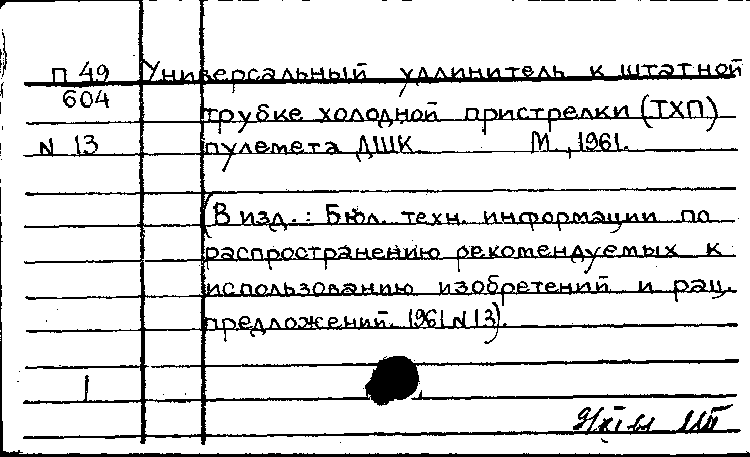 П 49 Универсальный удлинитель к штатной
604 трубке холодной пристрелки (ТХП)
N 13 пулемета ДШК. М., 1961.
(В изд.: Бюл. техн. информации по
распространению рекомендуемых к
использованию изобретений и рац.
предложений. 1961 N 13).
1